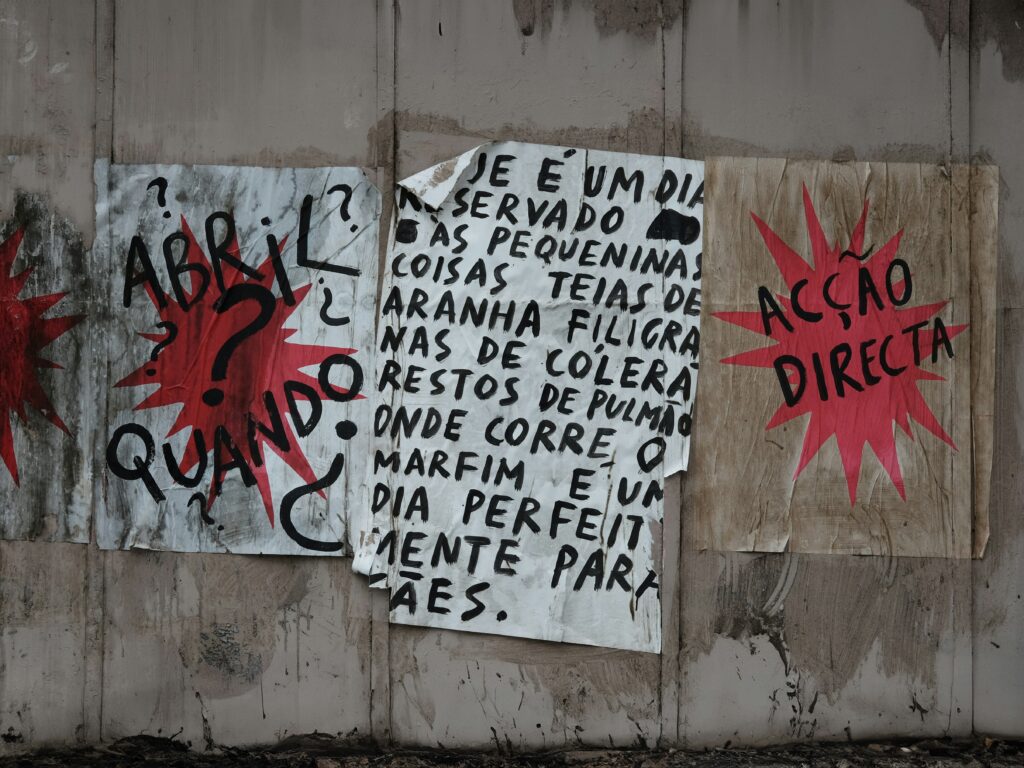 ABRIL
?
QUANDO
?
JE É UM DIA
RESERVADO
AS PEQUENINAS
COISAS TEIAS DE
ARANHA FILIGRA
NAS DE CÓLERA
RESTOS DE PULMÃO
ONDE CORRE O
MARFIM É UM
DIA PERFEIT
MENTE PARA
ÃES.
ACÇÃO
DIRECTA